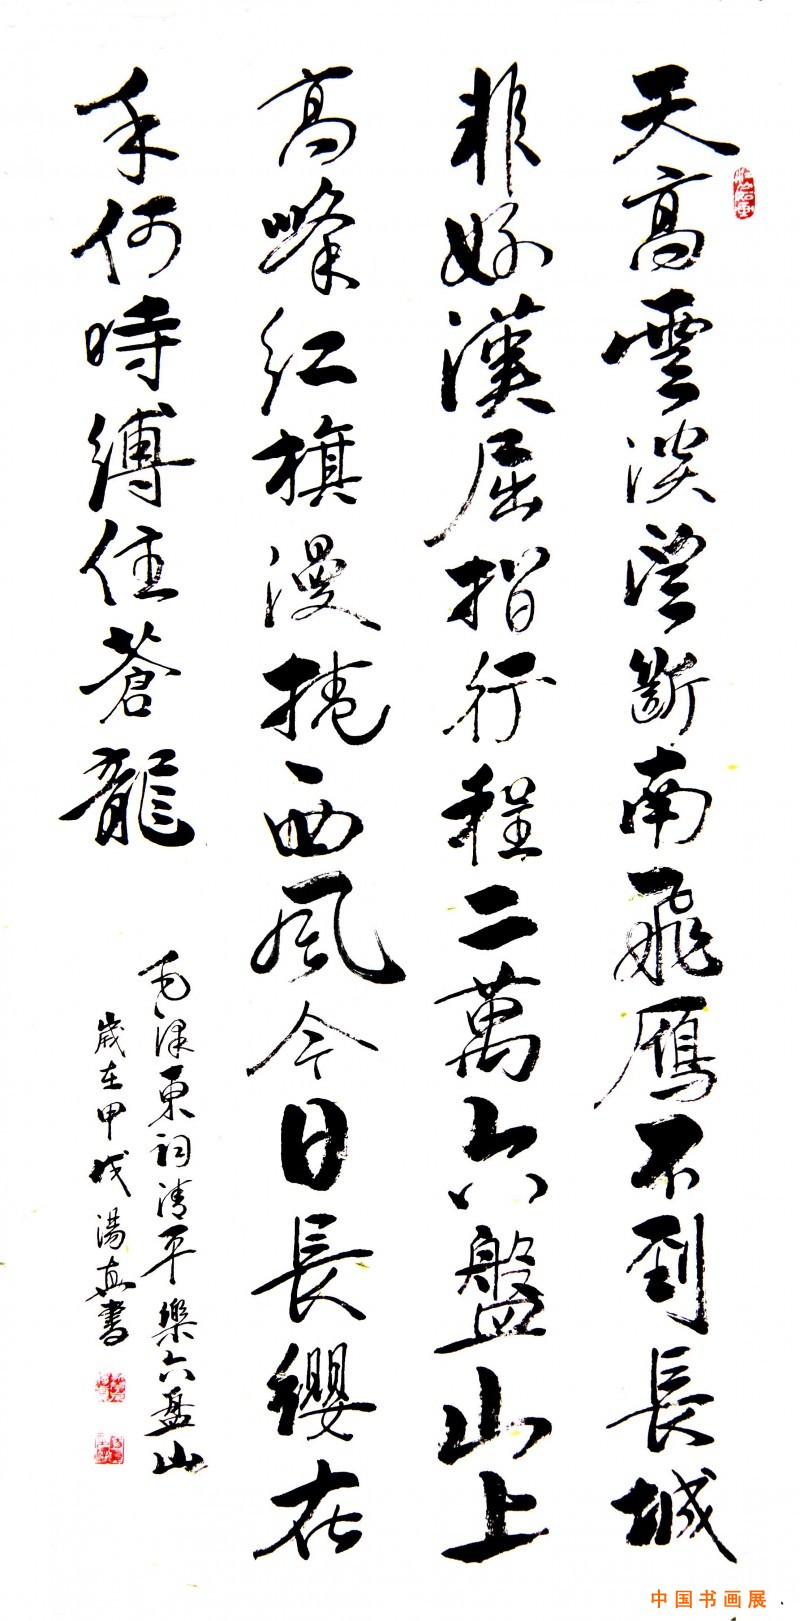 天高雲淡望斷南飛雁不到長城
非好漢屈指行程二萬六盤山上
高峰紅旗漫捲西風今日長纓在
手何時縛住蒼龍
毛澤東詞清平樂六盤山
歲在甲戌湯真書
中国书画展